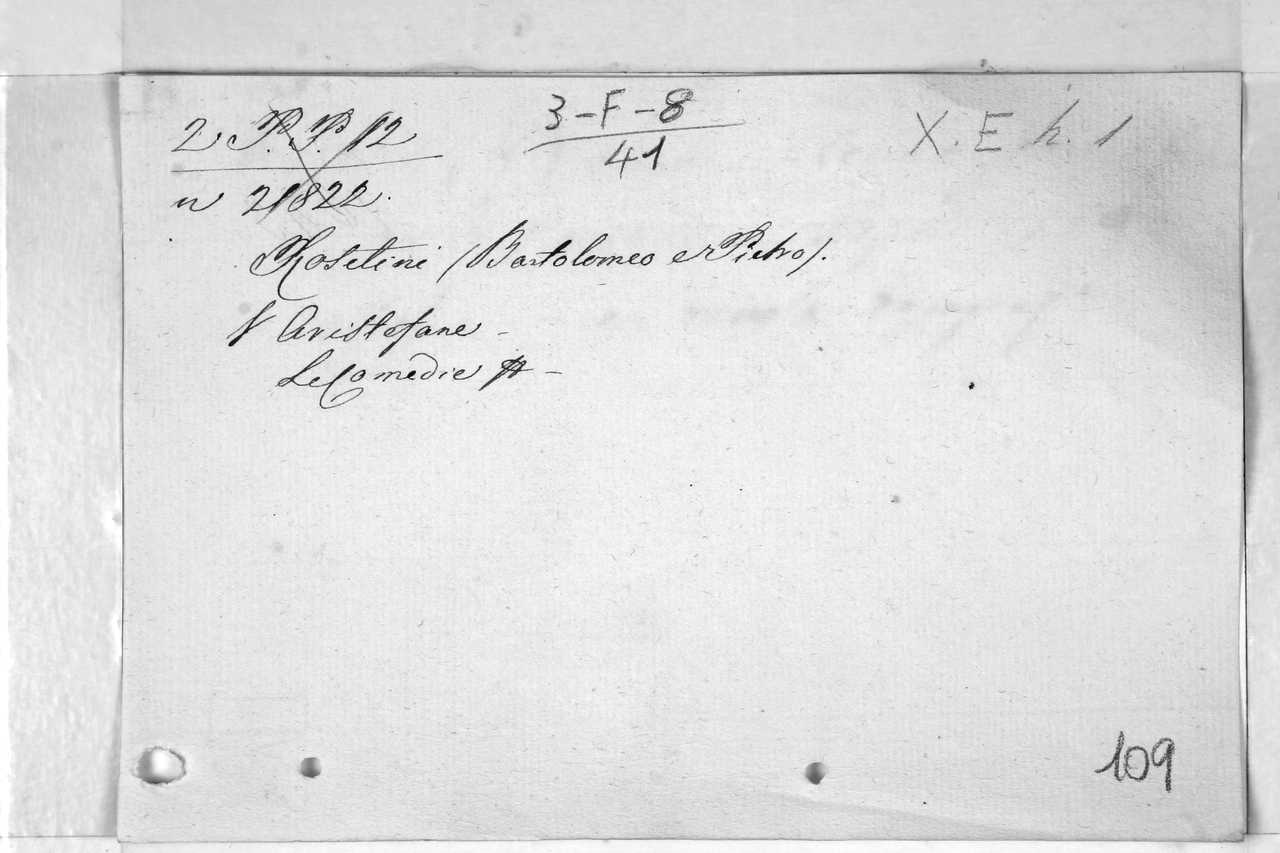 2 P. P. 12
n 21822.
3-F-8
41
X. E h. 1
Rosetini (Bartolomeo e Pietro).
V Aristofane -
Le Comedie -
109